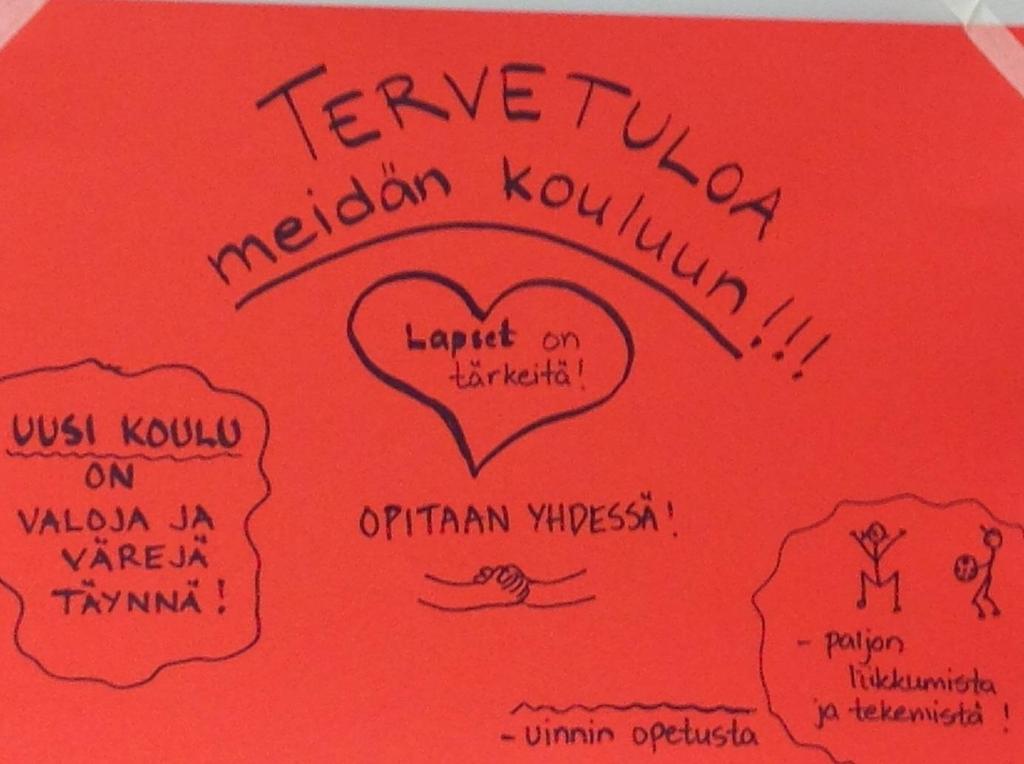 TERVETULOA
meidän kouluun!!!
Lapset on
tärkeitä!
UUSI KOULU
ON
VALOJA JA
VÄREJÄ
TÄYNNÄ!
OPITAAN YHDESSÄ!
- paljon
liikkumista
ja tekemistä!
- uinnin opetusta